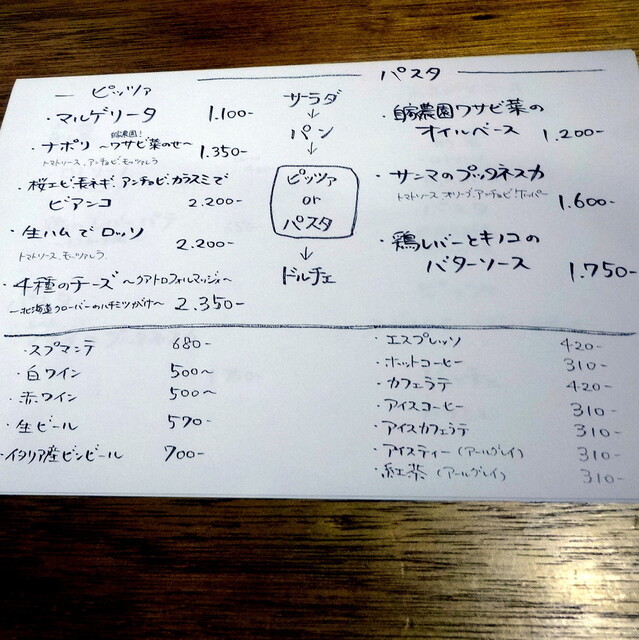 ピッツァ
・マルゲリータ 1.100-
自家農園!
・ナポリ ～ワサビ菜のせ～ 1.350-
トマトソース、アンチョビ・モッツァレラ
・桜エビ・長ネギ・アンチョビ・カラスミで
ビアンコ 2.200-
・生ハムでロッソ 2.200-
トマトソース、モッツァレラ
・4種のチーズ ～クアトロフォルマッジィ～
～北海道クローバーのハチミツがけ～ 2.350-
サラダ
↓
パン
↓
ピッツァ
or
パスタ
↓
ドルチェ
パスタ
・自家農園ワサビ菜の
オイルベース 1.200-
・サンマのプッタネスカ
トマトソース、オリーブ、アンチョビ、ケッパー 1.600-
・鶏レバーとキノコの
バターソース 1.750-
・スプマンテ 680-
・白ワイン 500～
・赤ワイン 500～
・生ビール 570-
・イタリア産ビンビール 700-
・エスプレッソ 420-
・ホットコーヒー 310-
・カフェラテ 420-
・アイスコーヒー 310-
・アイスカフェラテ 310-
・アイスティー (アールグレイ) 310-
・紅茶 (アールグレイ) 310-